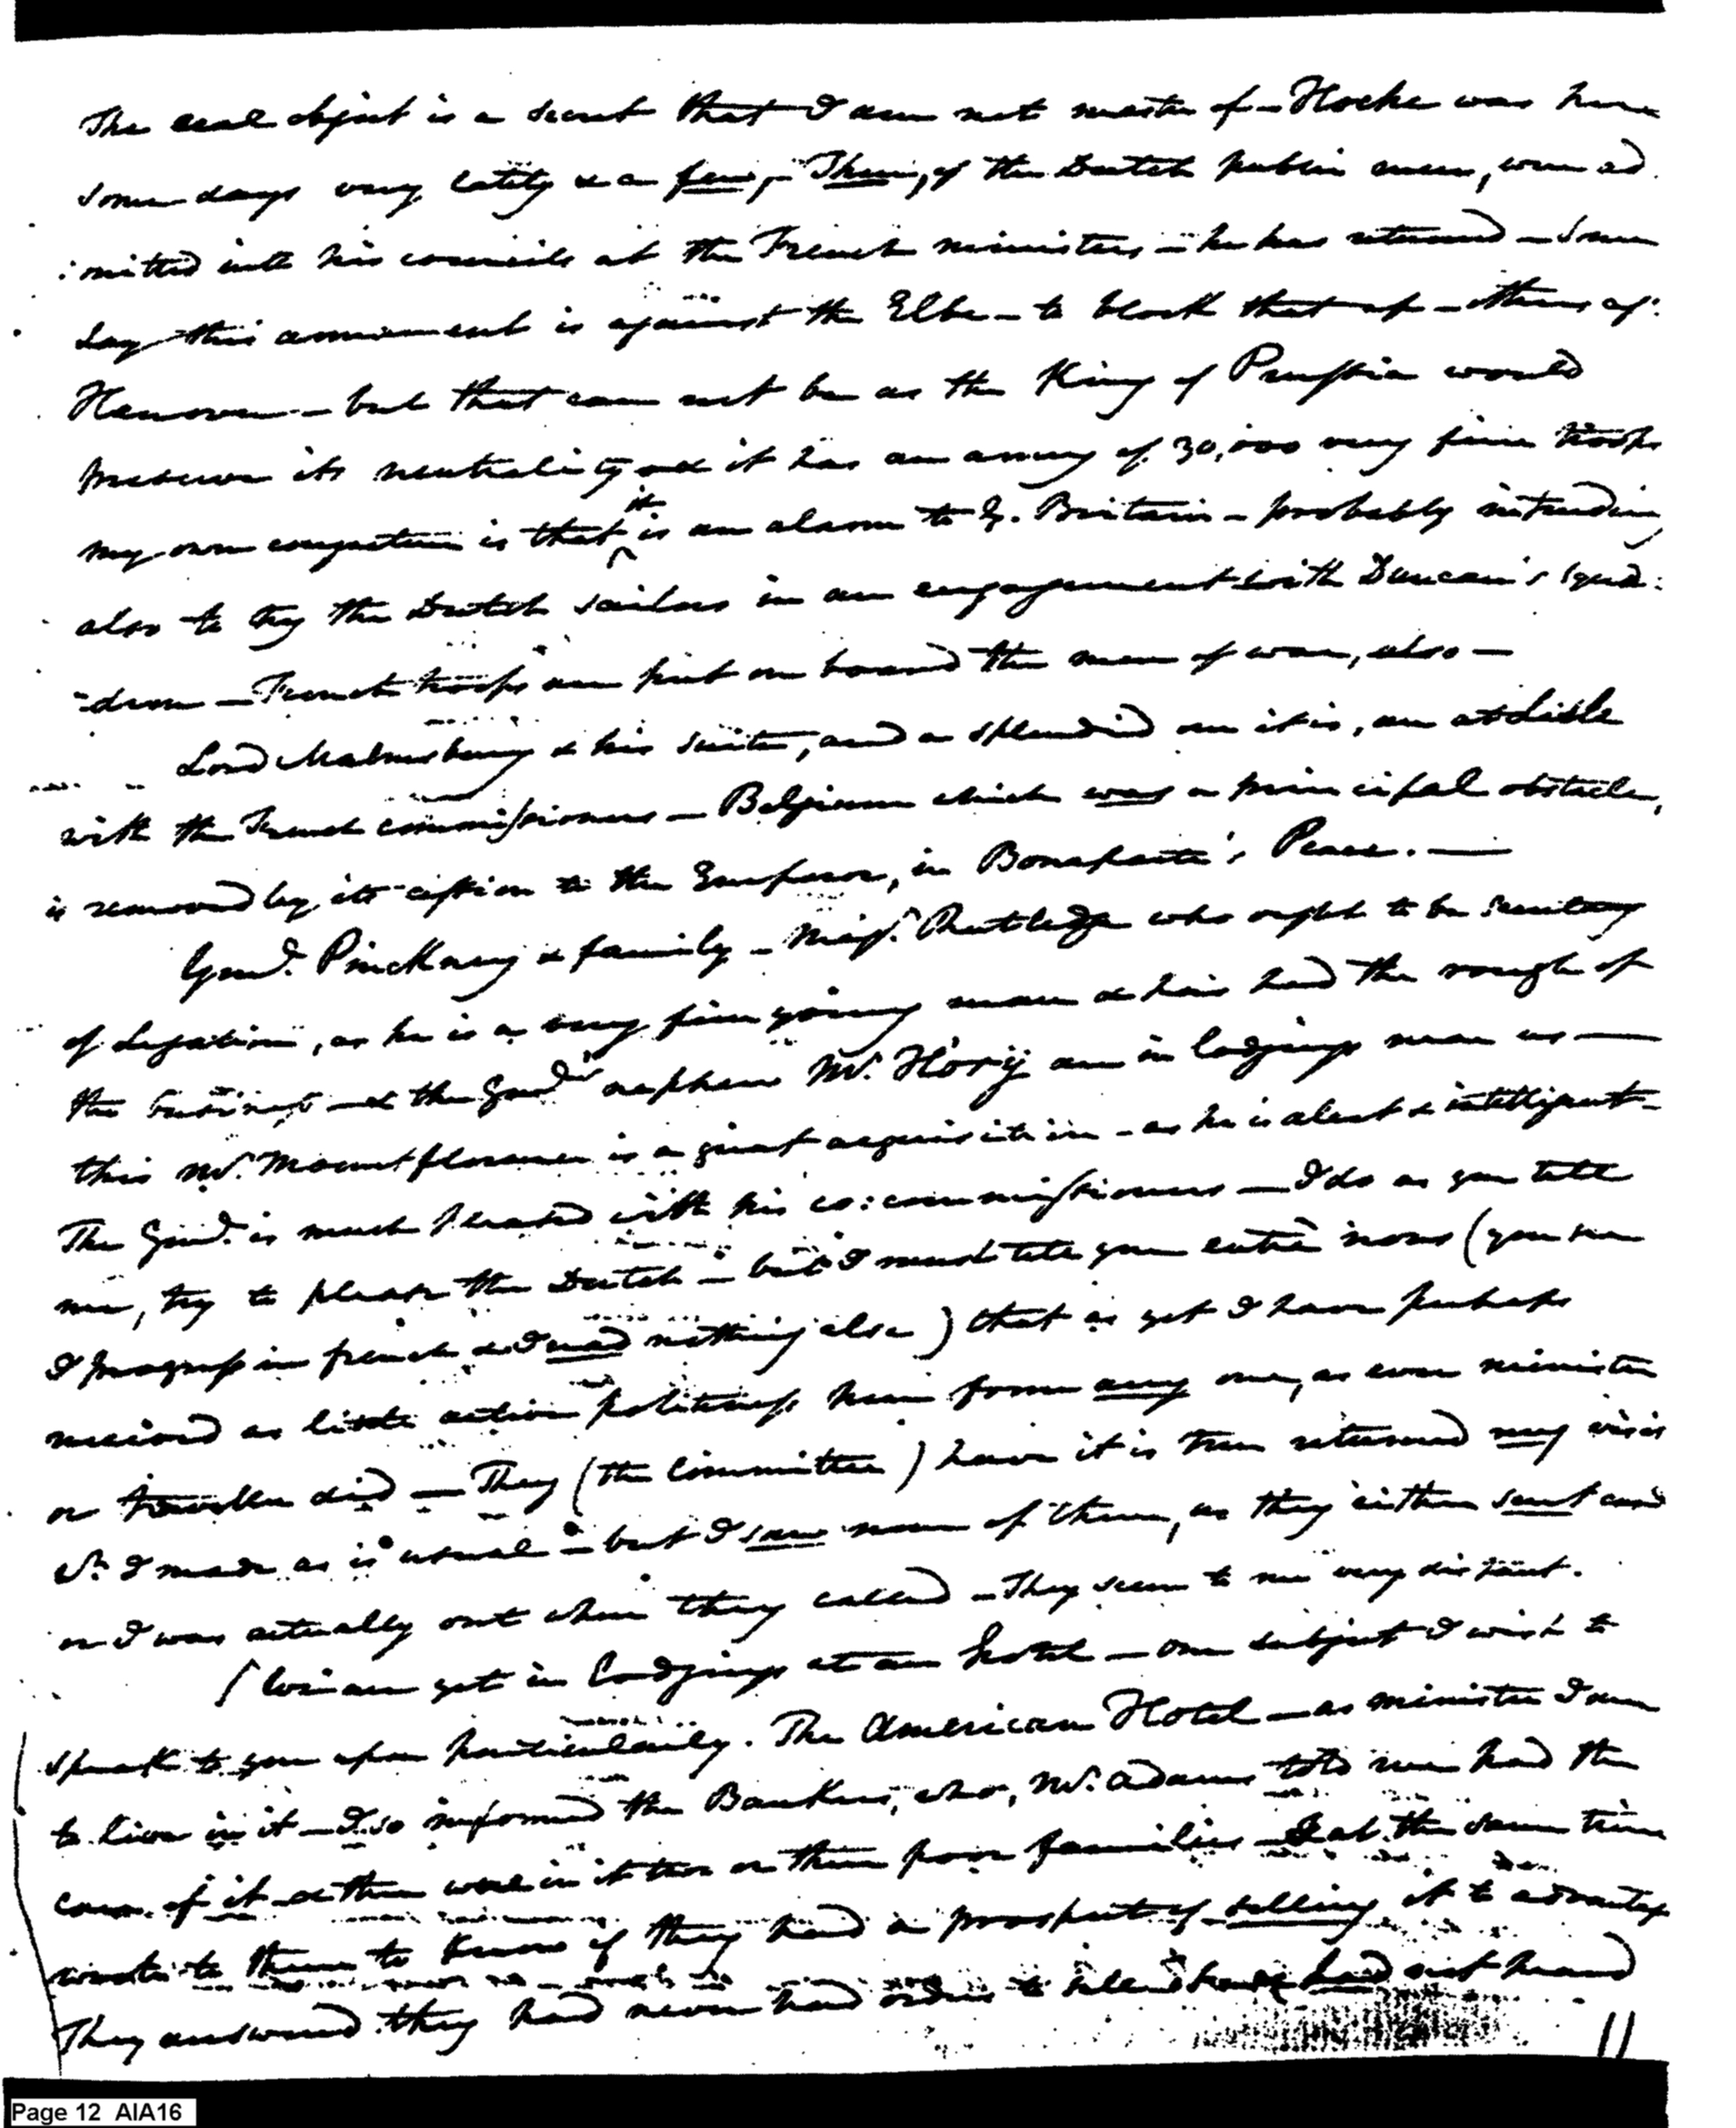 The real object is a secret that I am not master of – Hoche was here
some days very lately & a few, – Three, of the Dutch public men, were ad
:mitted into his councils at the French ministers – he has returned – Some
say this armament is against the Elbe – to block that up – others ag:
Hanover – but that can not be as the King of Prussia would
preserve its neutrality and it has an army of 30,000 very fine troops
my own conjecture is that it is an alarm to G. Britain – probably intending
also to try the Dutch sailors in an engagement with Duncan's squa:
-dron – French troops are put on board the men of war, also –
Lord Malmesbury & his suite, and a splendid one it is, are at Lisle
with the French commissioners – Belgium which was a principal obstacle,
is removed by its cession to the Emperor, in Bonaparte's Peace. –
Genl. Pinckney & family – Majr. Rutledge who ought to be secretary
of Legation, as he is a very fine young man & has had the rough of
the business – & the Genls nephew Mr. Hory are in lodgings near us –
this Mr. Mountflorence is a great acquisition – as he is alert & intelligent –
The Genl. is much pleased with his co:commissioners – I do as you tell
me, try to please the Dutch – but I must tell you entre nous (you see
I progress in french & I read nothing else) that as yet I have perhaps
received as little active politeness here from any one, as ever minister
or traveller did – They (the Committee) have it is true returned my visit
wh. I made as is usual – but I saw none of them, as they either sent card
or I was actually out when they called – They seem to me very distant.
/ We are yet in Lodgings at an hotel – one subject I wish to
speak to you upon particularly. The American Hotel – as minister I am
to live in it – I so informed the Bankers, who, Mr. Adams told me had the
care of it – & there were in it two or three poor families – I at the same time
wrote to them to know if they had a prospect of selling it to advantage
They answered they had never had orders to sell & had not heard
11
Page 12 AIA16